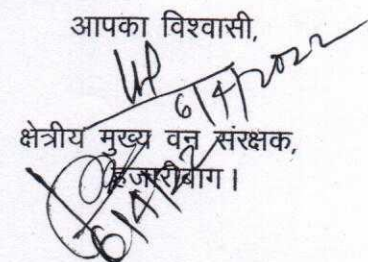 आपका विश्वासी,
6/4/2022
क्षेत्रीय मुख्य वन संरक्षक,
हजारीबाग।
6/4/22